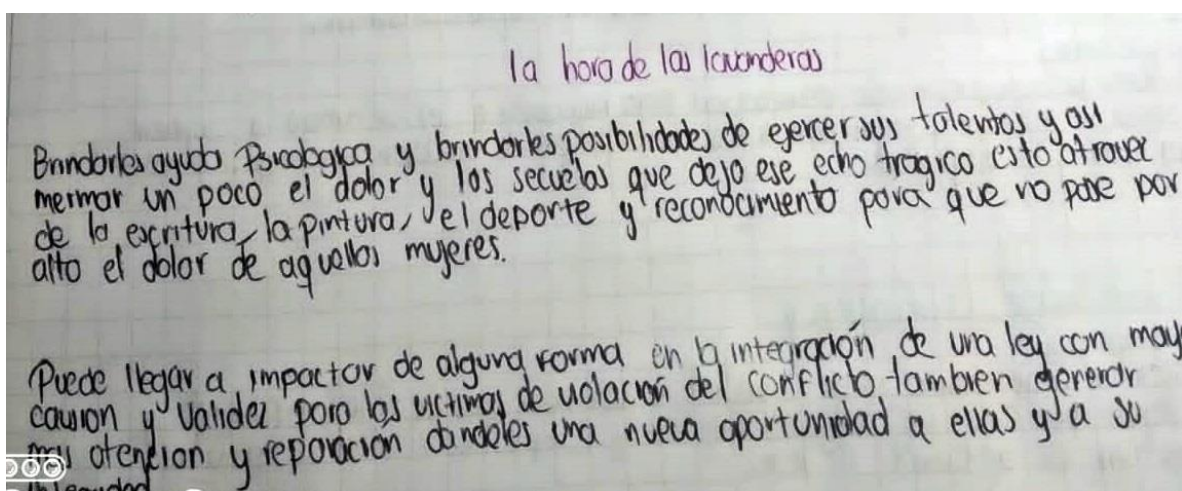 la hora de las lavanderas
Brindarles ayuda Psicologica y brindarles posibilidades de ejercer sus talentos y asi
mermar un poco el dolor y las secuelas que dejo ese echo tragico esto atravez
de la escritura, la pintura, el deporte y reconocimiento para que no pase por
alto el dolor de aquellas mujeres.
Puede llegar a impactar de alguna forma en la integración de una ley con may
y validez para las victimas de violación del conflicto tambien generar
atención y reparación dandoles una nueva oportunidad a ellas y a su